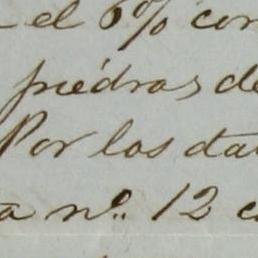 el 6% con
piédras de
Por los da
a nº. 12 c